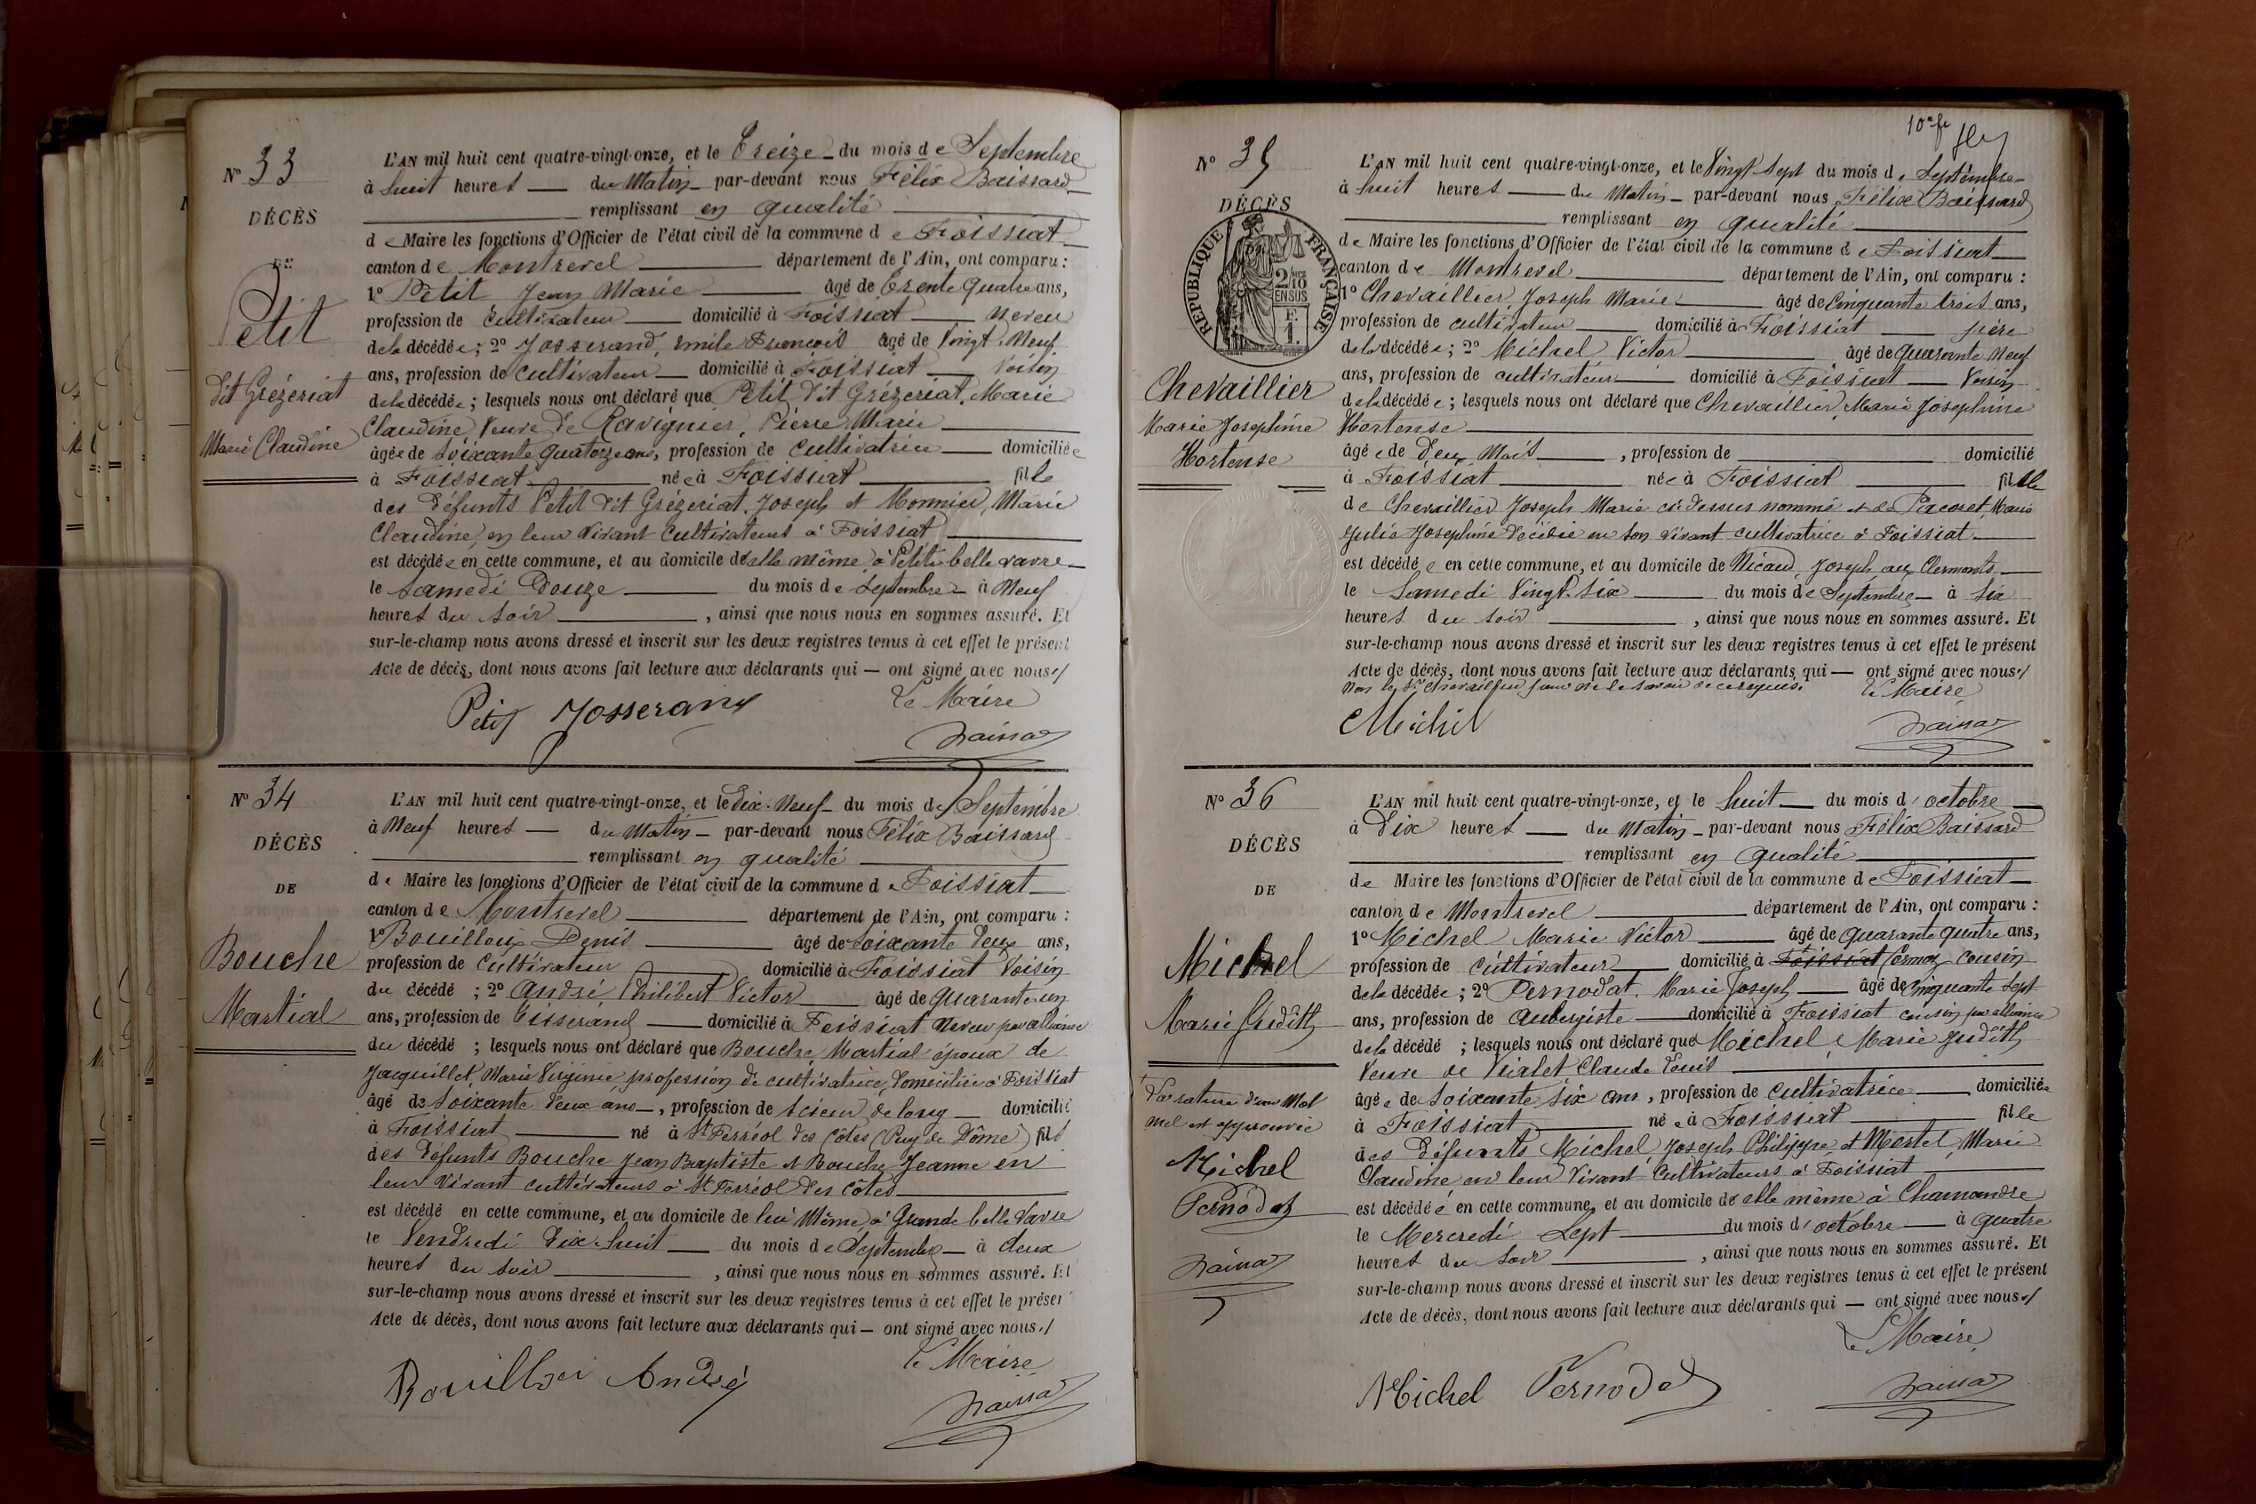 N° 33
DÉCÈS
DE
Petit
dit Grézeriat
Marie Claudine
L'AN mil huit cent quatre-vingt-onze, et le Treize du mois de Septembre
à huit heures du Matin par-devant nous Félix Baissard
remplissant en qualité
de Maire les fonctions d'Officier de l'état civil de la commune de Foissiat
canton de Montrevel département de l'Ain, ont comparu :
1° Petit Jean Marie âgé de Trente Quatre ans,
profession de cultivateur domicilié à Foissiat neveu
de la décédée ; 2° Josserand, Emile François âgé de Vingt Neuf
ans, profession de cultivateur domicilié à Foissiat Voisin
de la décédée ; lesquels nous ont déclaré que Petit dit Grézeriat, Marie
Claudine Veuve de Ravignier, Pierre Marie
âgée de soixante quatorze ans, profession de cultivatrice domiciliée
à Foissiat née à Foissiat fille
des défunts Petit dit Grézeriat, Joseph et Monnier, Marie
Claudine, en leur vivant cultivateurs à Foissiat
est décédée en cette commune, et au domicile d'elle même à Petite belle vavre
le Samedi Douze du mois de Septembre à Neuf
heures du soir, ainsi que nous nous en sommes assuré. Et
sur-le-champ nous avons dressé et inscrit sur les deux registres tenus à cet effet le présent
Acte de décès, dont nous avons fait lecture aux déclarants qui — ont signé avec nous ./
Le Maire
Petit Josserand
N° 34
DÉCÈS
DE
Bouche
Martial
L'AN mil huit cent quatre-vingt-onze, et le Dix-Neuf du mois de Septembre
à Neuf heures du Matin par-devant nous Félix Baissard
remplissant en qualité
de Maire les fonctions d'Officier de l'état civil de la commune de Foissiat
canton de Montrevel département de l'Ain, ont comparu :
1° Bouilloux Denis âgé de soixante deux ans,
profession de cultivateur domicilié à Foissiat Voisin
du décédé ; 2° André, Philibert Victor âgé de quarante un
ans, profession de Tisserand domicilié à Foissiat Neveu par alliance
du décédé ; lesquels nous ont déclaré que Bouche, Martial époux de
Jacquillet, Marie Virginie profession de cultivatrice, domiciliée à Foissiat
âgé de soixante deux ans, profession de scieur de long domicilié
à Foissiat né à St Ferréol des Côtes (Puy de Dôme) fils
des défunts Bouche Jean Baptiste et Bouche Jeanne en
leur vivant cultivateurs à St Ferréol des Côtes
est décédé en cette commune, et au domicile de lui même à Grande belle Vavre
le Vendredi Dix-huit du mois de Septembre à deux
heures du soir, ainsi que nous nous en sommes assuré. Et
sur-le-champ nous avons dressé et inscrit sur les deux registres tenus à cet effet le présen
Acte de décès, dont nous avons fait lecture aux déclarants qui — ont signé avec nous ./
Le Maire
André
N° 35
DÉCÈS
RÉPUBLIQUE FRANÇAISE
2/10
EN SUS
F. 1.
Chevaillier
Marie Josephine
Hortense
L'AN mil huit cent quatre-vingt-onze, et le Vingt Sept du mois de Septembre
à huit heures du Matin par-devant nous Félix Baissard
remplissant en qualité
de Maire les fonctions d'Officier de l'état civil de la commune de Foissiat
canton de Montrevel département de l'Ain, ont comparu :
1° Chevaillier, Joseph Marie âgé de cinquante trois ans,
profession de cultivateur domicilié à Foissiat père
de la décédée ; 2° Michel Victor âgé de quarante Neuf
ans, profession de cultivateur domicilié à Foissiat Voisin
de la décédée ; lesquels nous ont déclaré que Chevaillier Marie Josephine
Hortense
âgée de deux Mois, profession de domicilié
à Foissiat née à Foissiat fille
de Chevaillier Joseph Marie ci-dessus nommé et de Pacoret, Marie
Julie Josephine décédée en son vivant cultivatrice à Foissiat
est décédée en cette commune, et au domicile de Nicaud, Joseph aux Clermonts
le Samedi Vingt-Six du mois de Septembre à Six
heures du soir, ainsi que nous nous en sommes assuré. Et
sur-le-champ nous avons dressé et inscrit sur les deux registres tenus à cet effet le présent
Acte de décès, dont nous avons fait lecture aux déclarants qui — ont signé avec nous ./
Non le Sr Chevaillier pour ne le savoir de ce requis.
Le Maire
Michel
N° 36
DÉCÈS
DE
Michel
Marie Judith
L'AN mil huit cent quatre-vingt-onze, et le huit du mois d'octobre
à Dix heures du Matin par-devant nous Félix Baissard
remplissant en qualité
de Maire les fonctions d'Officier de l'état civil de la commune de Foissiat
canton de Montrevel département de l'Ain, ont comparu :
1° Michel Marie Victor âgé de quarante quatre ans,
profession de cultivateur domicilié à Foissiat Cormoz cousin
de la décédée ; 2° Pernodat, Marie Joseph âgé de cinquante Sept
ans, profession de Aubergiste domicilié à Foissiat cousin par alliance
de la décédé ; lesquels nous ont déclaré que Michel, Marie Judith
Veuve de Vialet Claude Louis
âgée de soixante six ans, profession de cultivatrice domiciliée
à Foissiat née à Foissiat fille
des défunts Michel, Joseph Philippe et Mortel, Marie
Claudine en leur vivant cultivateurs à Foissiat
est décédée en cette commune, et au domicile de elle même à Chamandre
le Mercredi Sept du mois d'octobre à quatre
heures du soir, ainsi que nous nous en sommes assuré. Et
sur-le-champ nous avons dressé et inscrit sur les deux registres tenus à cet effet le présent
Acte de décès, dont nous avons fait lecture aux déclarants qui — ont signé avec nous ./
Le Maire
Michel Pernodat
La rature d'un Mot
nul est approuvée
Michel
Pernodat